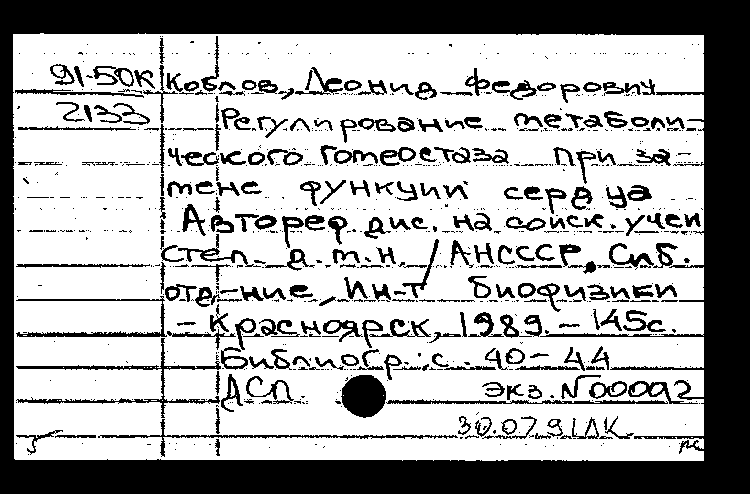 91-50К Коблов, Леонид Федорович
2133 Регулирование метаболи-
ческого гомеостаза при за-
мене функции сердца
Автореф. дис. на соиск. учен
степ. д.т.н. / АНСССР, Сиб.
отд-ние, Ин-т биофизики
- Красноярск, 1989. - 145с.
Библиогр.: с. 40-44
ДСП. экз. №00092
30.07.91 ЛК.